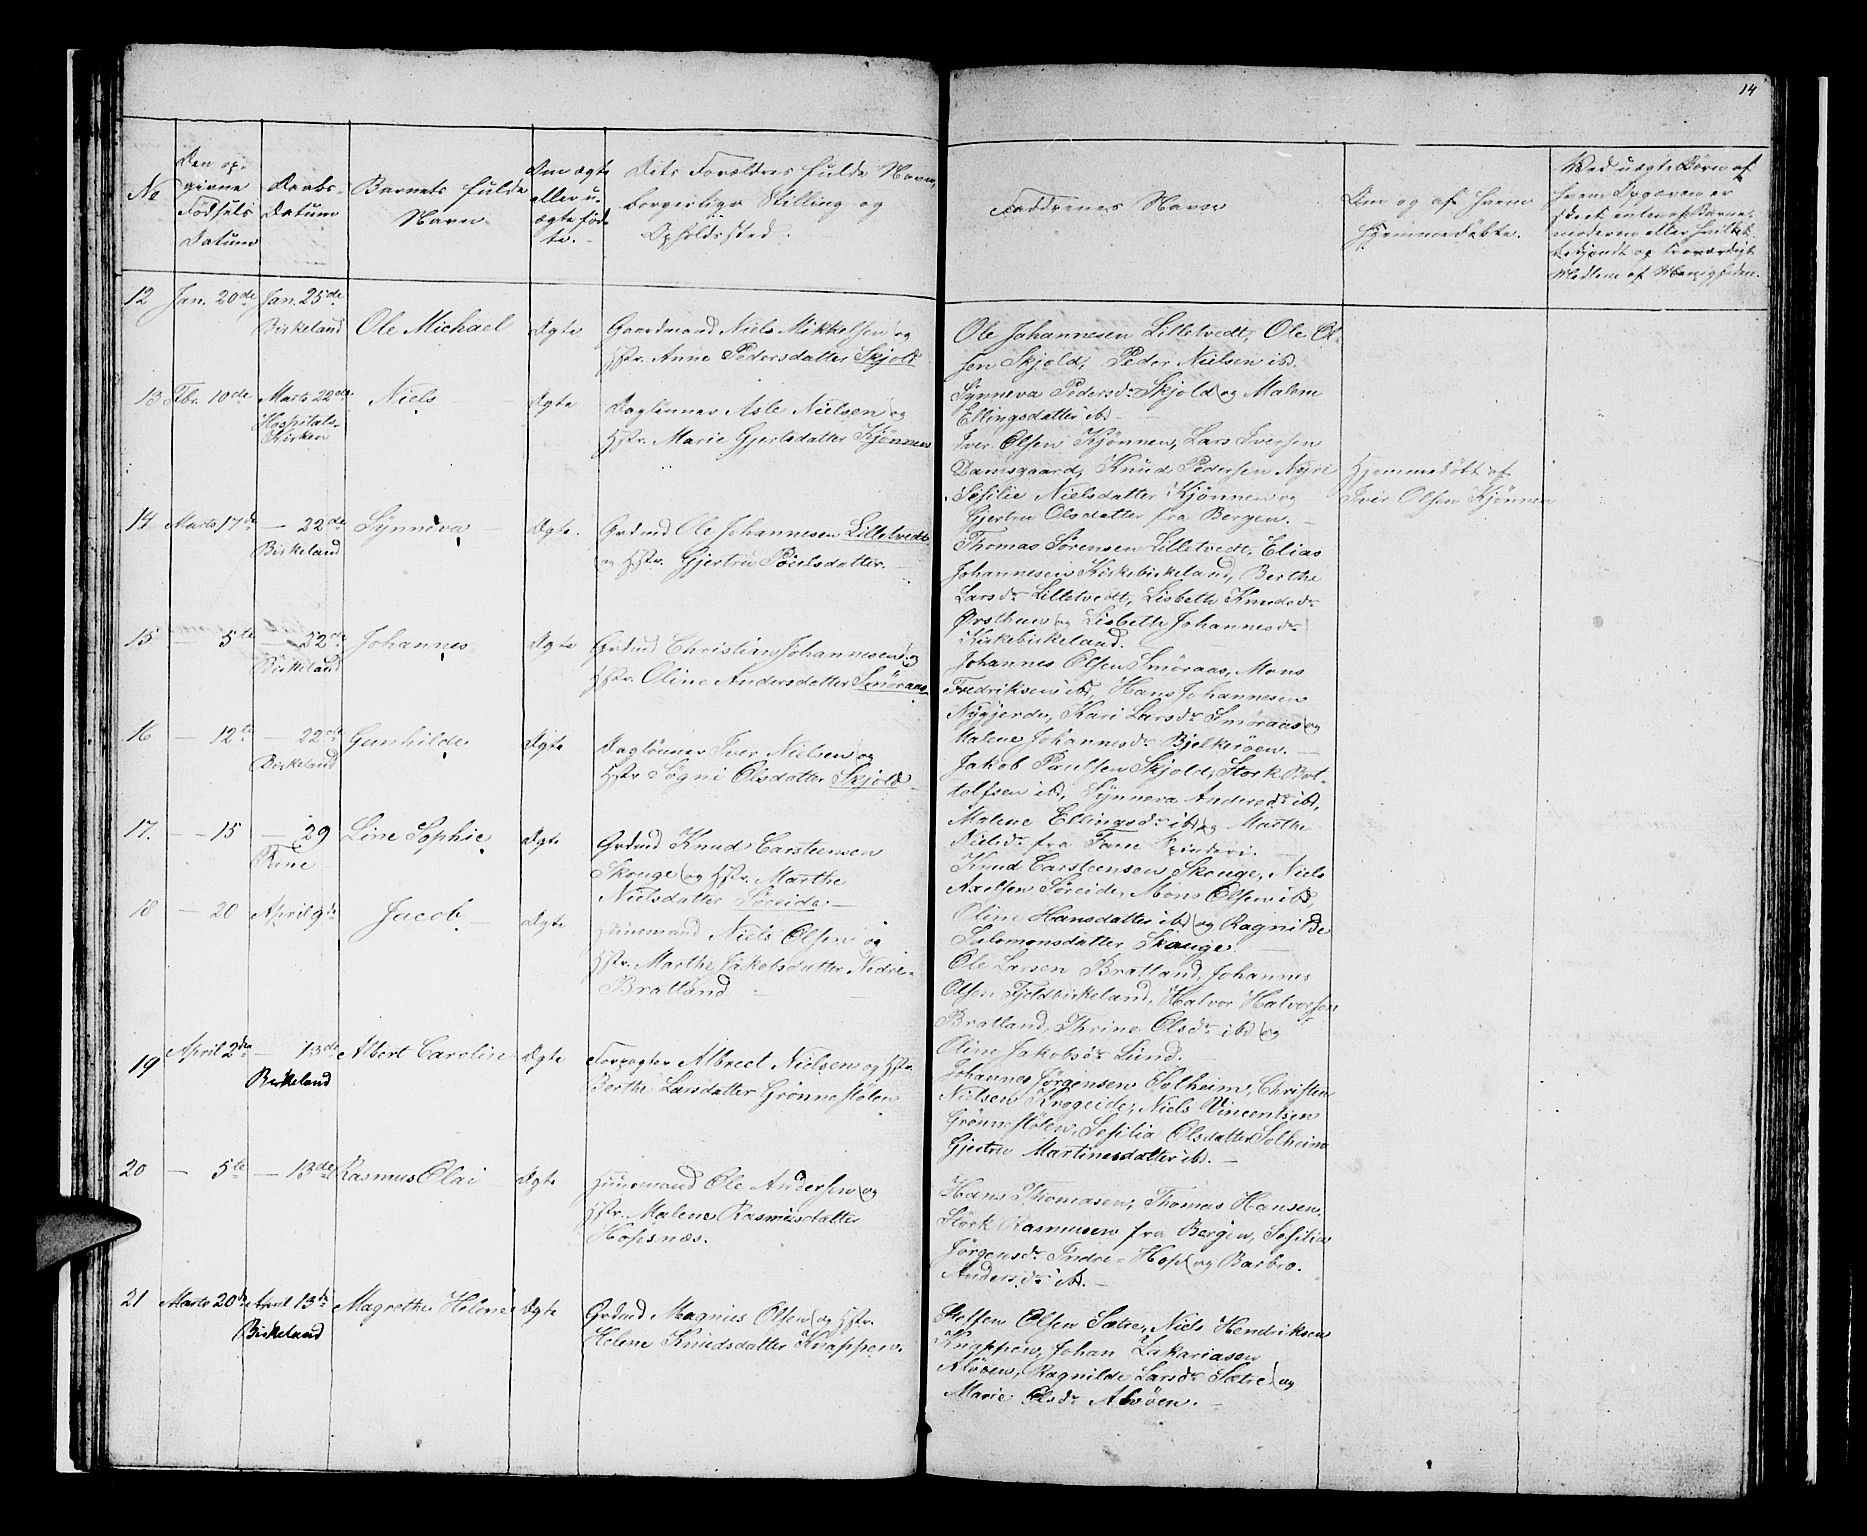 14
No
Den op-
givne
Fødsels
Datum
Daabs-
Datum
Barnets fulde
Navn
Om ægte
eller u-
ægte fød-
te.
Dets Forældres fulde Navn,
borgerlige Stilling og
Opholdssted.
Faddrenes Navne
Om og af hvem
Hjemmedøbte.
Ved uægte Børn af
hvem Opgaven er
skeet enten af Barne-
moderen eller hvilket
bekjendt og troværdigt
Medlem af Menigheden.
12 Jan. 20de Jan. 25de
Birkeland Ole Michael Ægte Gaardmand Niels Mikkelsen og
Hstr. Anne Pedersdatter Skjold
Ole Johannesen Lilletvedt, Ole Ol-
sen Skjold, Peder Nielsen ibd.
Synneva Pedersdr Skjold og Malene
Ellingsdatter ibd.
13 Fbr. 10de Marts 22de Niels Ægte Daglønner Asle Nielsen og
Hospitals-
Kirken
Hstr. Marie Gjertsdatter Kjønnen
Iver Olsen Kjønnen, Lars Iversen
Damsgaard, Knud Pedersen Nyre
Sesilie Nielsdatter Kjønnen og
Gjertru Olsdatter fra Bergen.
Hjemmedøbt af
Iver Olsen Kjønnen
14 Marts 17de — 22de Synneva Ægte. Grdmd Ole Johannesen Lilletvedt
Birkeland
og Hstr. Gjertru Poulsdatter.
Thomas Sørensen Lilletvedt, Elias
Johannesen Kirkebirkeland, Berthe
Larsdr Lilletvedt, Lisbeth Knudsdr
Ørsthun og Lisbeth Johannesdr
Kirkebirkeland.
15 — 5te 22de Johannes Ægte Grdmd Christian Johannesen og
Birkeland
Hstr. Oline Andersdatter Smøraas
Johannes Olsen Smøraas, Mons
Fredriksen ibd, Hans Johannesen
Nygjerde, Kari Larsdr Smøraas og
Malene Johannesdr Bjelkerøen.
16 — 12te — 22de Gunhilde Ægte Daglønner Iver Nielsen og
Birkeland
Hstr Søgni Olsdatter Skjold
Jakob Paulsen Skjold, Stork Bot-
tolfsen ibd, Synneva Andersdr ibd,
Malene Ellingsdr ibd og Marthe
Nielsdr fra Fane Spinderi.
17. — 15 — 29 Line Sophie Ægte Grdmd Knud Carstensen
Fane
Skouge og Hstr. Marthe
Nielsdatter Søreide
Knud Carstensen Skouge, Niels
Axelsen Søreide, Mons Olsen ibd,
Oline Hansdatter ibd og Ragnilde
Salomonsdatter Skouge
18 — 20 April 9de Jacob Ægte Huusmand Niels Olsen og
Hstr. Marthe Jakobsdatter Nedre-
Bratland
Ole Larsen Bratland, Johannes
Olsen Fjeldbirkeland, Halvor Halvorsen
Bratland, Thrine Olsdr ibd og
Oline Jakobsdr Lund.
19 April 2den — 13de Albert Caroline Ægte Forpagter Albrect Nielsen og Hstr.
Birkeland
Berthe Larsdatter Grønnestølen
Johannes Jørgensen Solheim, Christen
Nielsen Krogeide, Niels Vincentsen
Grønnestølen, Sesilia Olsdatter Solheim
Gjertru Martinesdatter ibd.
20 — 5te — 13de Rasmus Olai Ægte Huusmand Ole Andersen og
Hstr. Malene Rasmusdatter
Hopsnæs.
Hans Thomasen, Thomas Hansen,
Størk Rasmusen fra Bergen, Sesilia
Jørgensdr Indre-Hop og Barbro
Andersdr ibd.
21 Marts 20de April 13de Magrethe Helene Ægte Grdmd Magnus Olsen og Hstr.
Birkeland
Helene Knudsdatter Knappen.
Steffen Olsen Sætre, Niels Hendriksen
Knappen, Johan Zakariasen
Alvøen, Ragnilde Larsdr Sætre og
Marie Olsdr Alvøen.